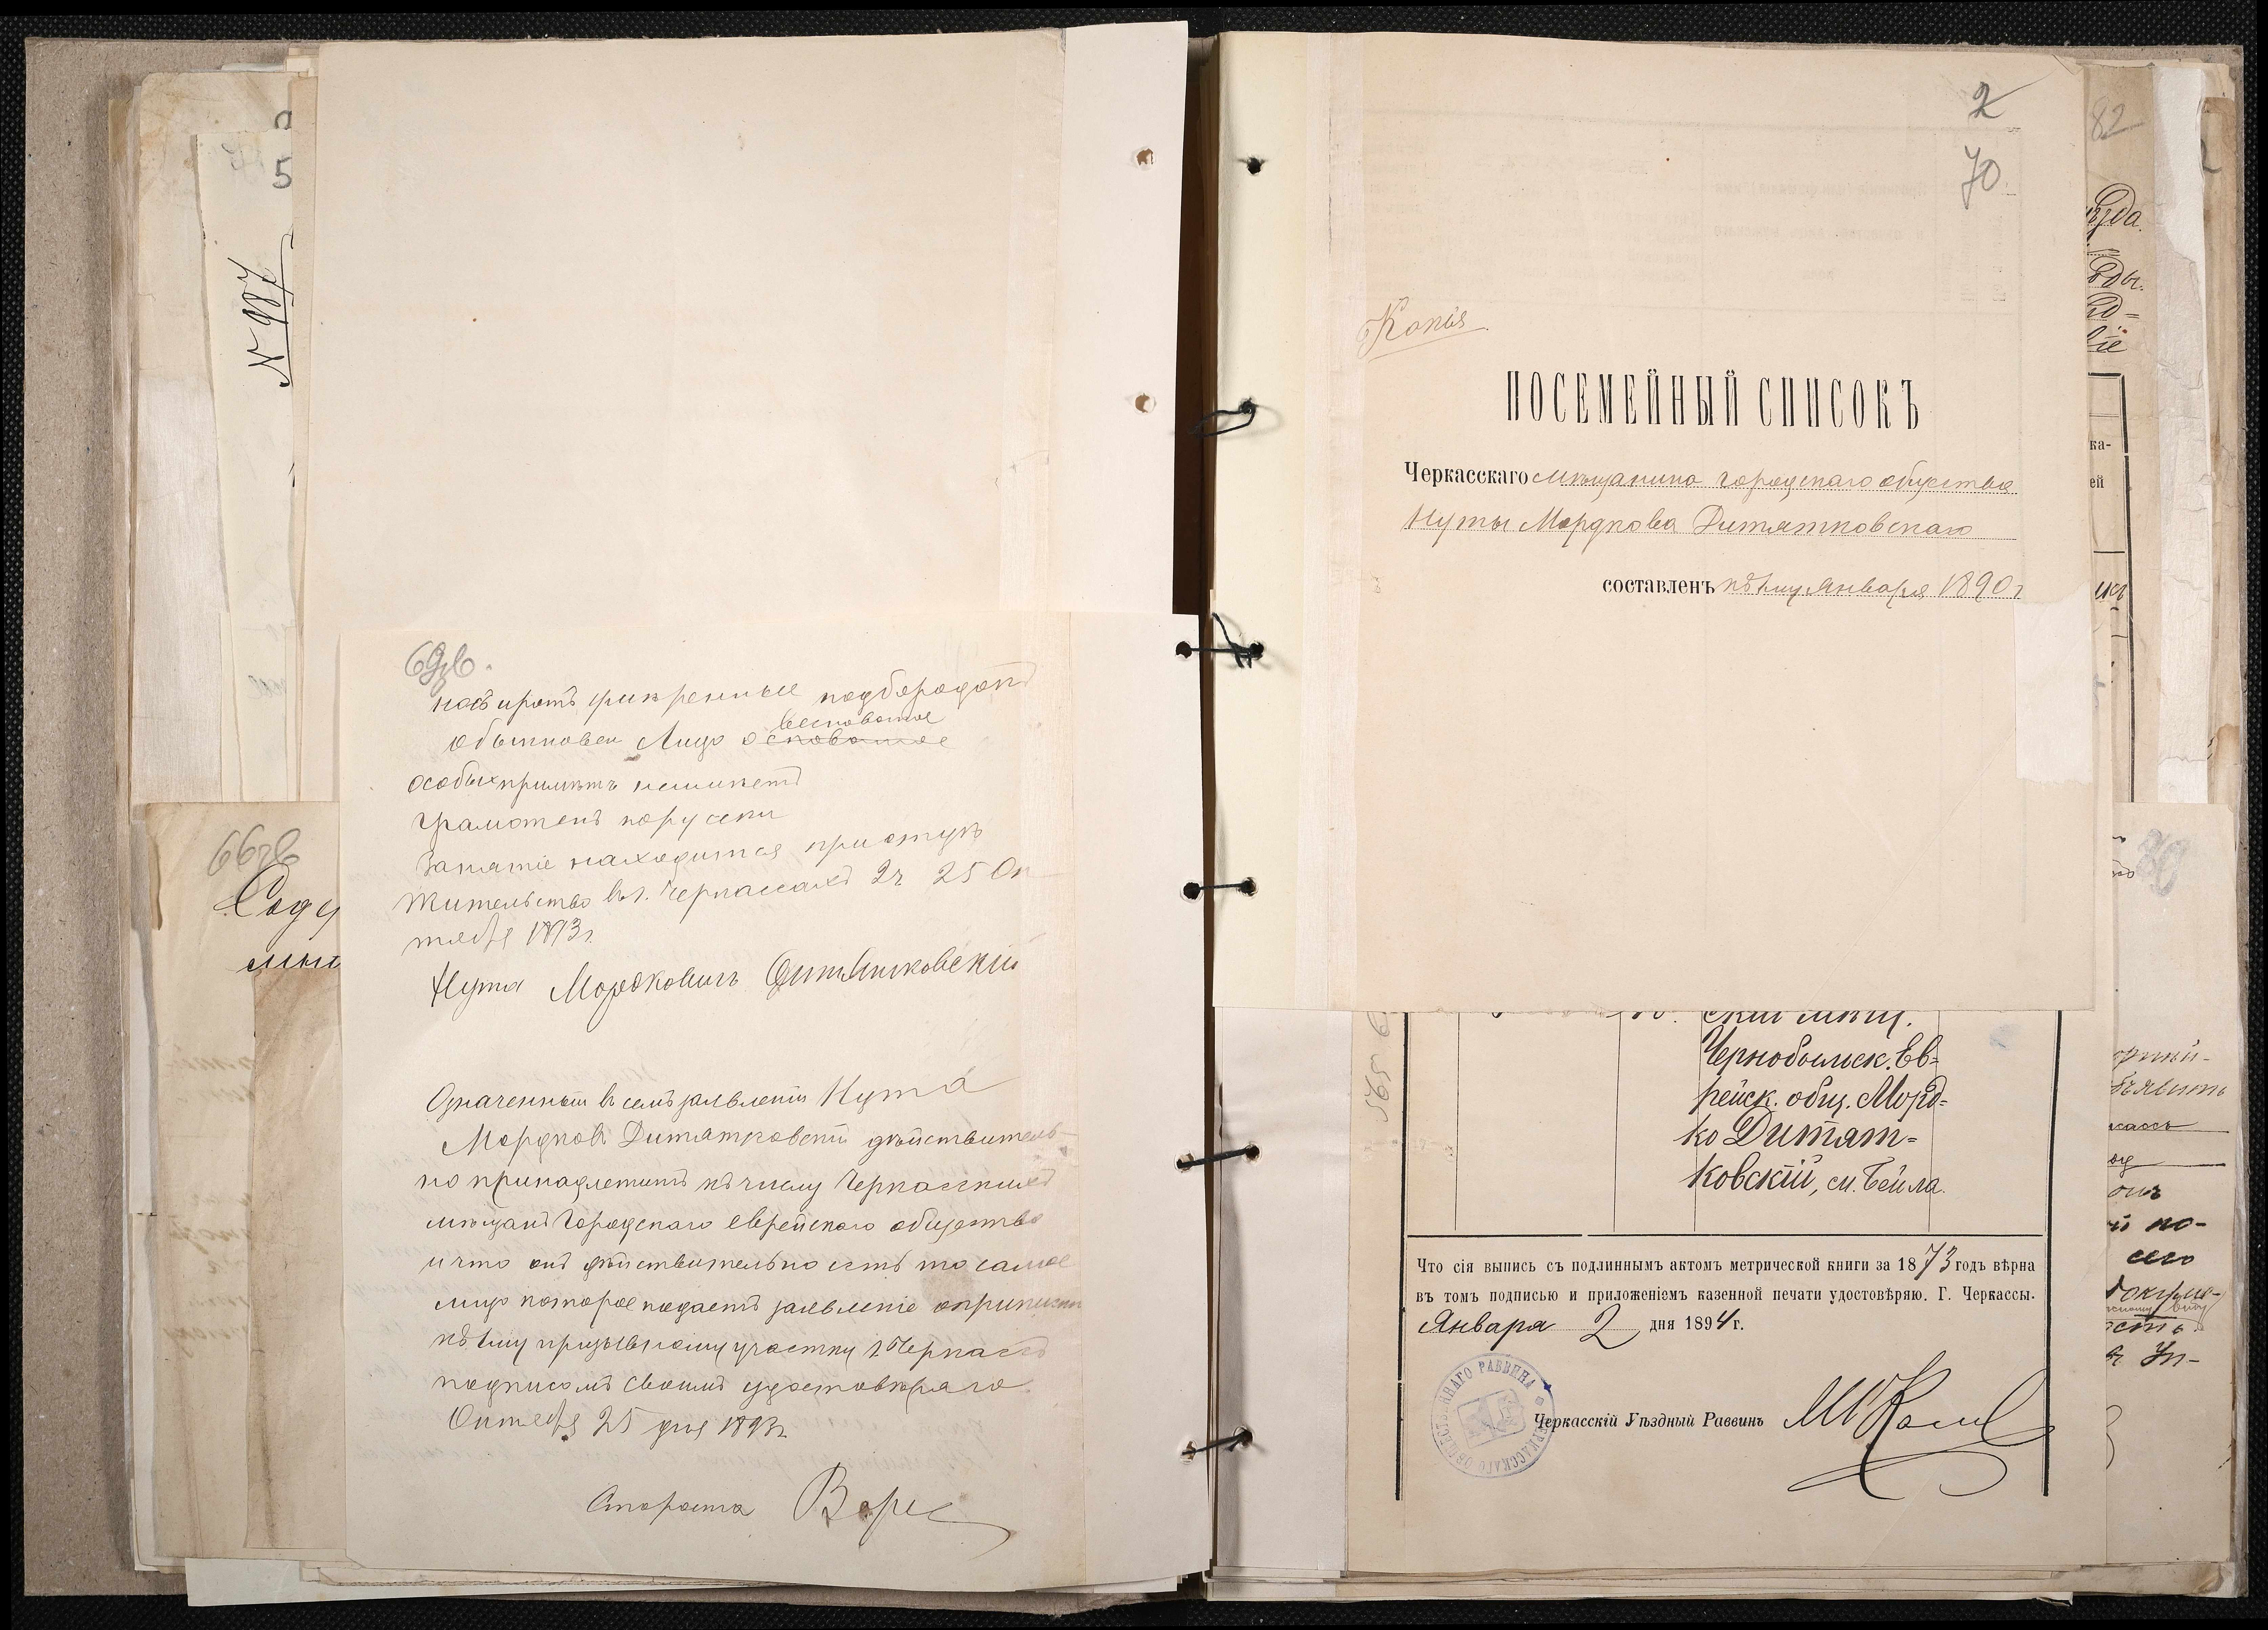 5
N 987
66об
Соду
69об.
носъ иротъ умѣренные подбородокъ
весноватое
обыкновен Лицо осповатое
особыхъ примѣтъ неимѣетъ
Грамотенъ порусски
Занятіе находится при отцѣ
Жительство въ г. Черкассахъ 2ч 25 Ок
тября 1893г.
Нута Мордковичъ Дитятковскій
Означенный въ семъ заявленіи Нута
Мордковъ Дитятковскій дѣйствитель-
но принадлежитъ къ числу Черкасскихъ
мѣщанъ Городскаго еврейскаго общества
и что онъ дѣйствительно есть то самое
лицо которое подаетъ заявленіе о припискѣ
къ 1му призывному участку г. Черкассъ
подписомъ своимъ удостовѣряю
Октября 25 дня 1893г.
Староста
2
70
Копія
ПОСЕМЕЙНЫЙ СПИСОКЪ
Черкасскаго мѣщанина городскаго общества
Нуты Мордкова Дитятковскаго
составленъ къ 1му Января 1890г
скій мѣщ.
Чернобыльск. Ев-
рейск. общ. Морд-
ко Дитят-
ковскій, см. Бейла.
Что сія выпись съ подлиннымъ актомъ метрической книги за 1873 годъ вѣрна
въ томъ подписью и приложеніемъ казенной печати удостовѣряю. Г. Черкассы.
Января 2 дня 1894 г.
ЧЕРКАССКАГО ОБЩЕСТВЕННАГО РАВВИНА
Черкасскій Уѣздный Раввинъ
82
ѣзда.
ка-
ей
по-
сего